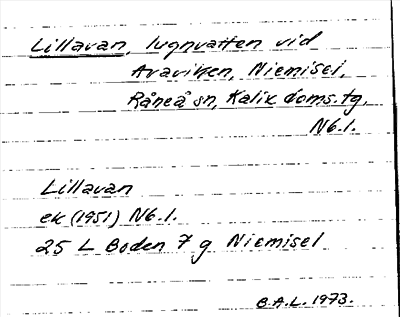 Lillavan, lugnvatten vid
Araviken, Niemisel,
Råneå sn, Kalix doms.tg,
Nb.l.
Lillavan
ek (1951) Nb.l.
25 L Boden 7 g Niemisel
B.A.L. 1973.